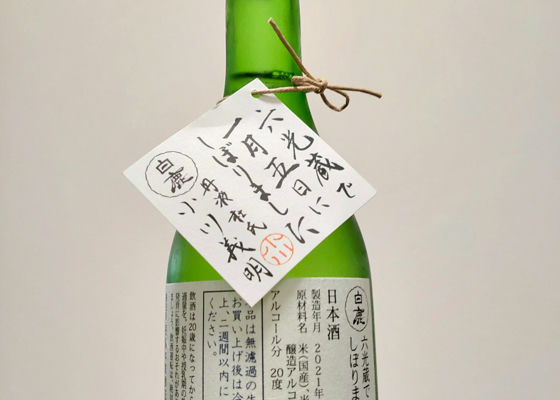 六光蔵で
一月五日に
しぼりました
丹波杜氏
小川義明
小川
白鹿
白鹿
六光蔵で
しぼりま
日本酒
原材料名 米(国産)、米
醸造アルコ
製造年月 2021年
アルコール分 20度
品は無濾過の生
お買い上げ後は冷
上、二週間以内に
ください。
飲酒は20歳になってから
酒量を。妊娠中や授乳期の